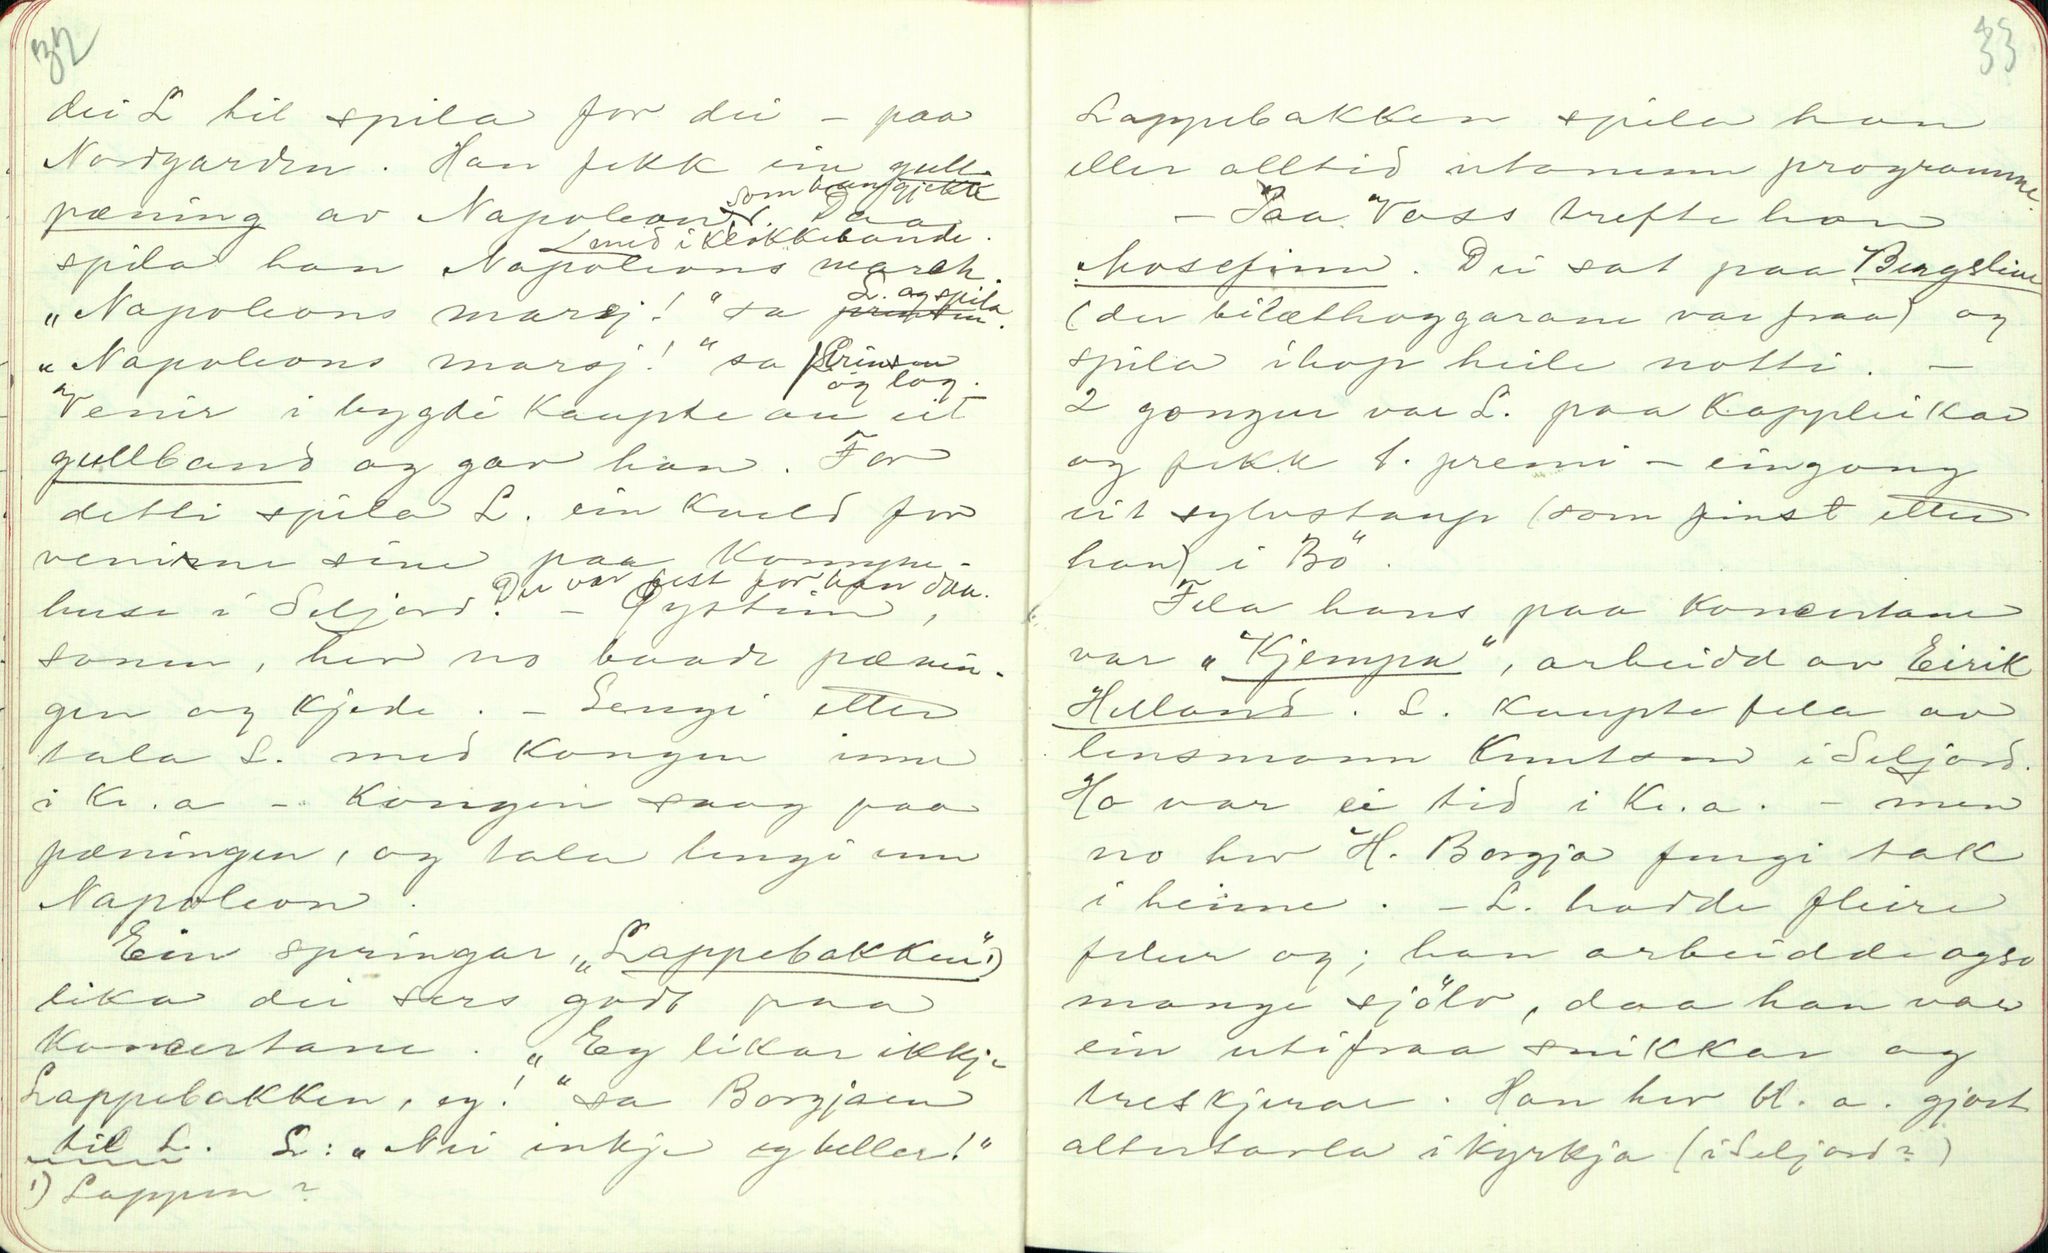 32
dei L til spila for dei – paa
Nordgarden. Han fekk ein gull-
pæning av Napoleon d. Daa
som han gjekk
med i klokkebande.
spila han Napoleons march.
„Napoleons marsj!" sa L. og spila.
„Napoleons marsj!" sa Prinsen
og log.
Venir i bygdi kaupte au eit
gullband og gav han. For
detti spila L. ein kveld for
venirne sine paa Kommune-
huse i Seljord. – Øystein,
Dei var fest for han daa.
sonen, hev no baade pænin-
gen og kjede. – Lengi etter
tala L. med kongen inne
i Kr.a – Kongin saag paa
pæningen, og tala lengi um
Napoleon.
Ein springar, „Lappebakken"¹)
lika dei sers godt paa
koncertane. „Eg likar ikkje
Lappebakken, eg!" sa Borgjaen
til L. L: „Nei inkje eg heller!"
¹) Lappen?
33
Lappebakken spila han
eller alltid utanum programme.
– Paa Voss trefte han
Mosefinn. Dei sat paa Bergslien
(der bilæthoggarane var fraa) og
spila ihop heile notti. –
2 gongur var L. paa Kappleikar
og fekk 1. premi – eingong
eit sylvstaup (som finst etter
han) i Bö.
Fela hans paa koncertane
var „Kjempa", arbeidd av Eirik
Helland. L. kaupte fela av
lensmann Knutson i Seljord.
Ho var ei tid i Kr.a. – men
no hev H. Borgja fengi tak
i heinne. – L. hadde fleire
felur og; han arbeidde ogso
mange sjölv, daa han var
ein utifraa snikkar og
treskjerar. Han hev bl. a. gjort
altertavla i kyrkja (i Seljord?)